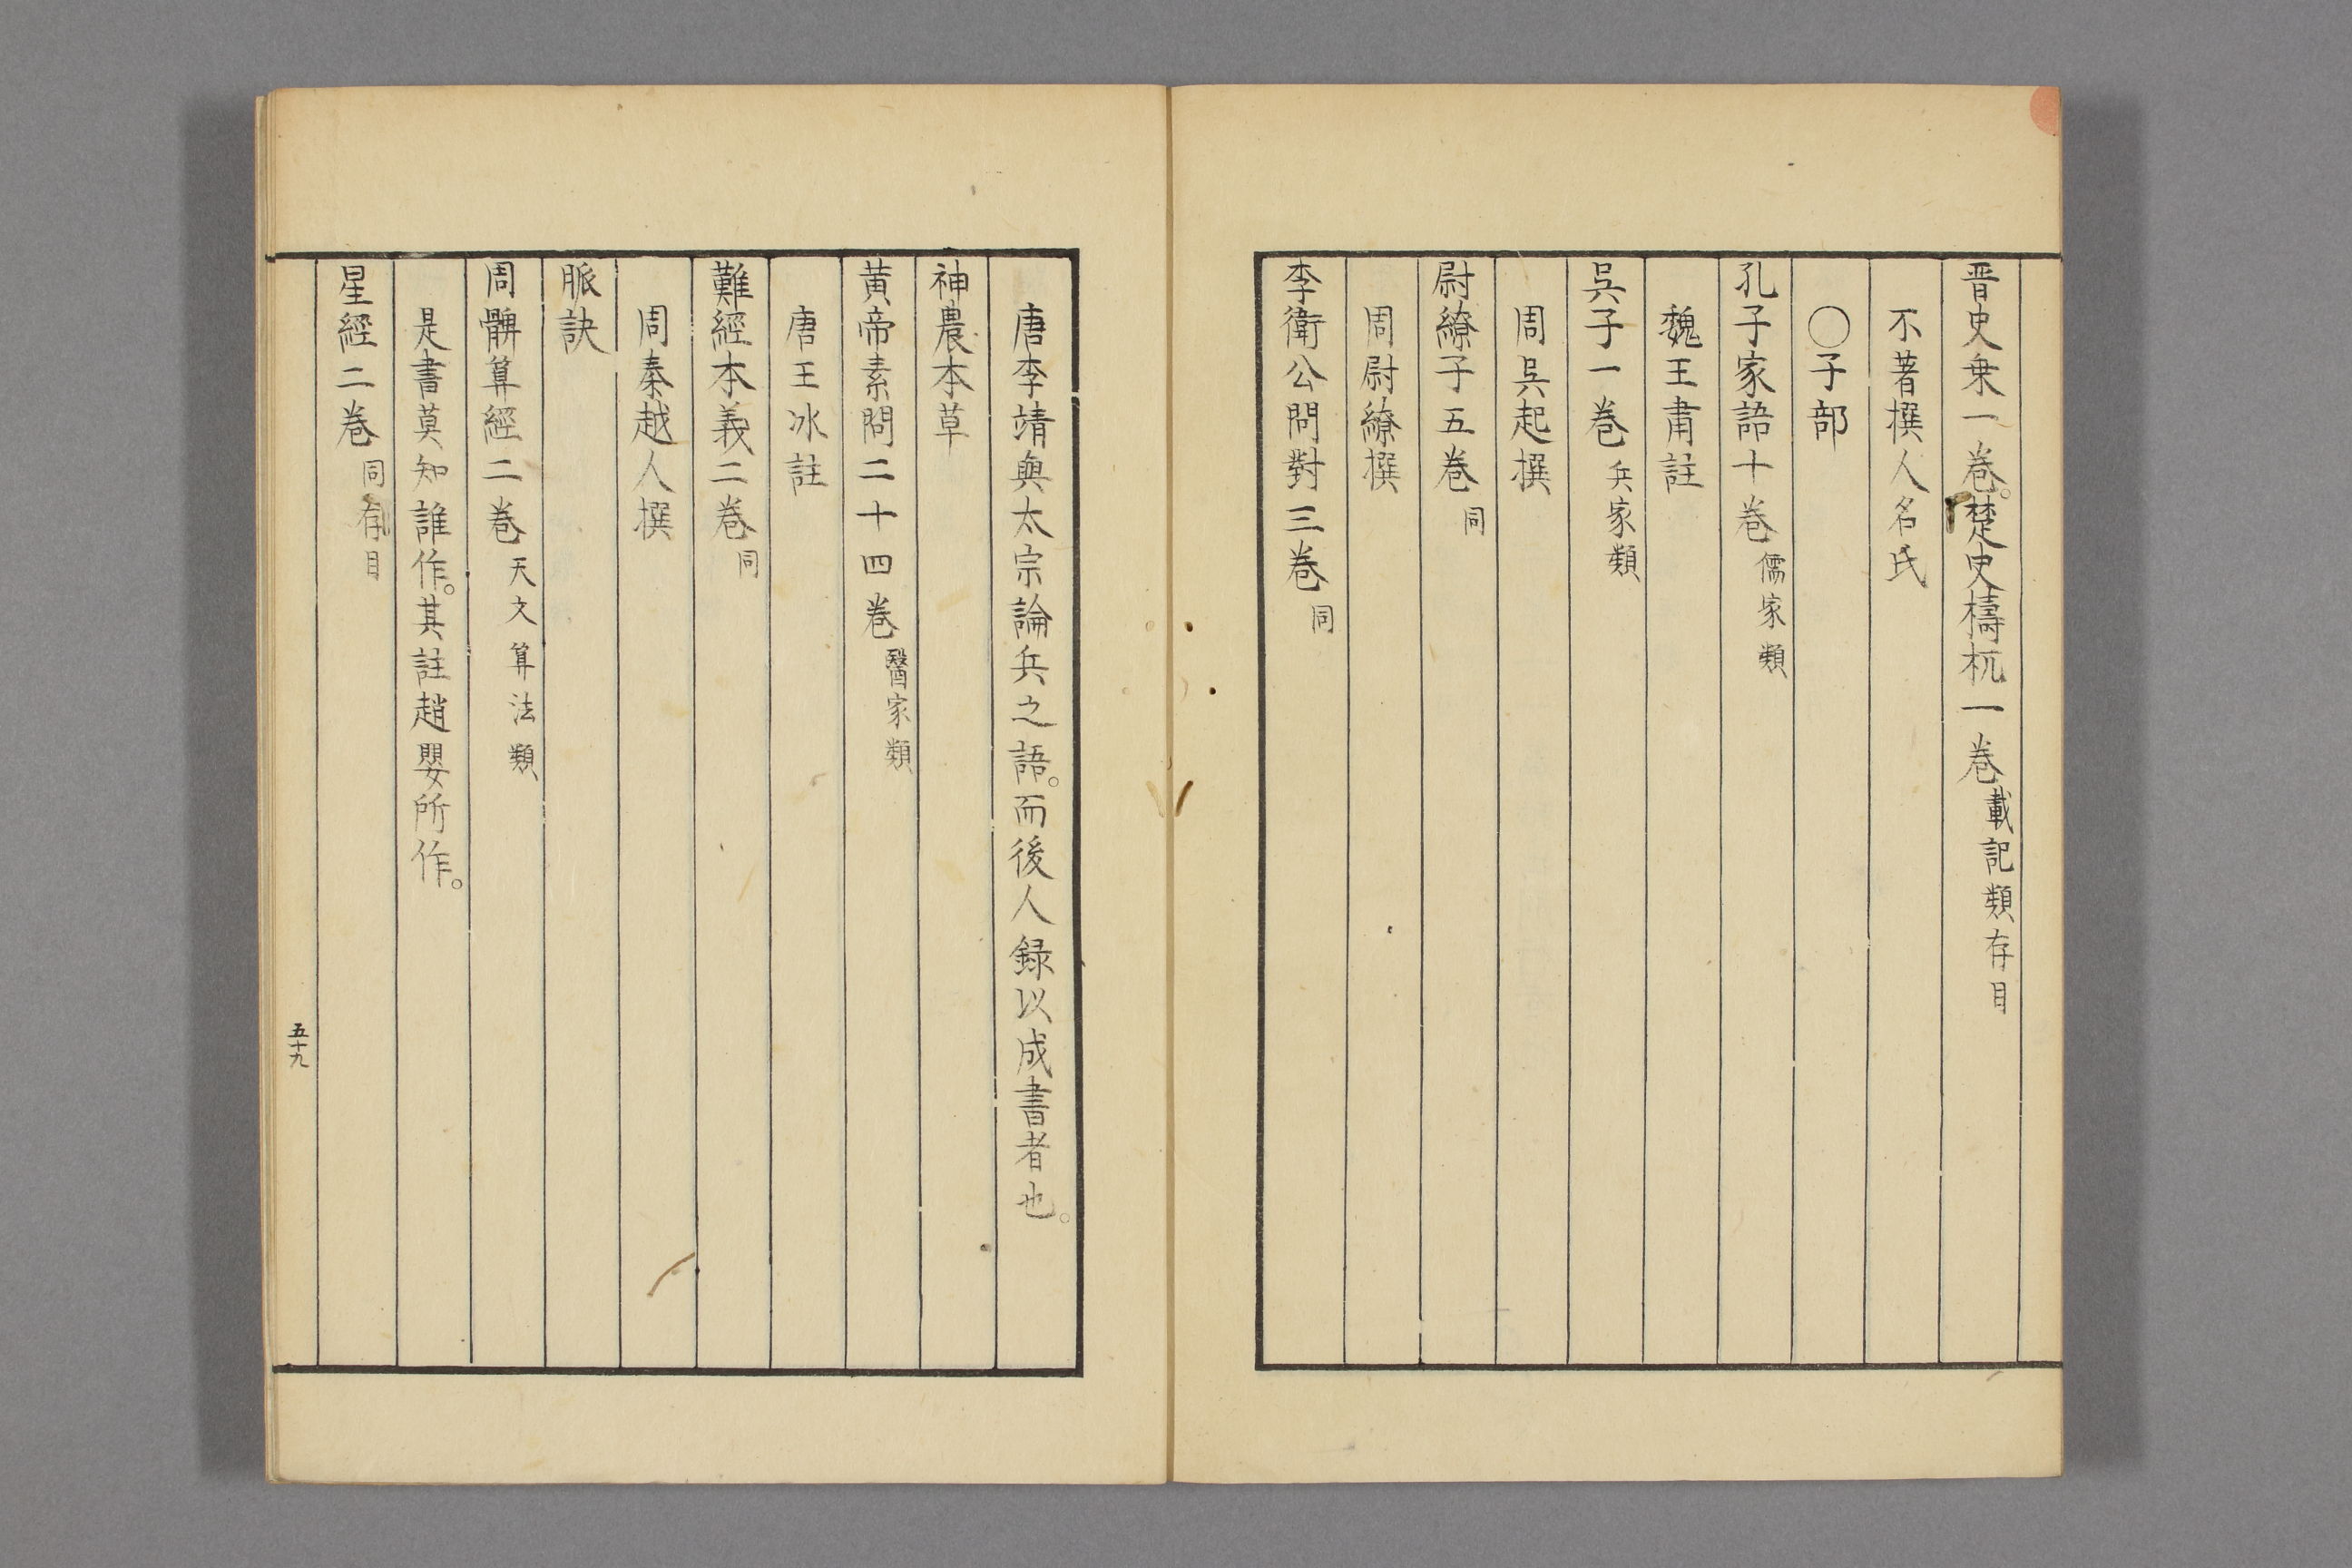 晋史乗一巻。楚史檮杌一巻載記類存目
不著撰人名氏
〇子部
孔子家語十巻儒家類
魏王肅註
呉子一巻兵家類
周呉起撰
尉繚子五巻同
周尉繚撰
李衛公問對三巻同
唐李靖與太宗論兵之語。而後人録以成書者也。
神農本草
黄帝素問二十四巻醫家類
唐王冰註
難經本義二巻同
周秦越人撰
脈訣
周髀算經二巻天文算法類
是書莫知誰作。其註趙嬰所作。
星經二巻同存目
五十九